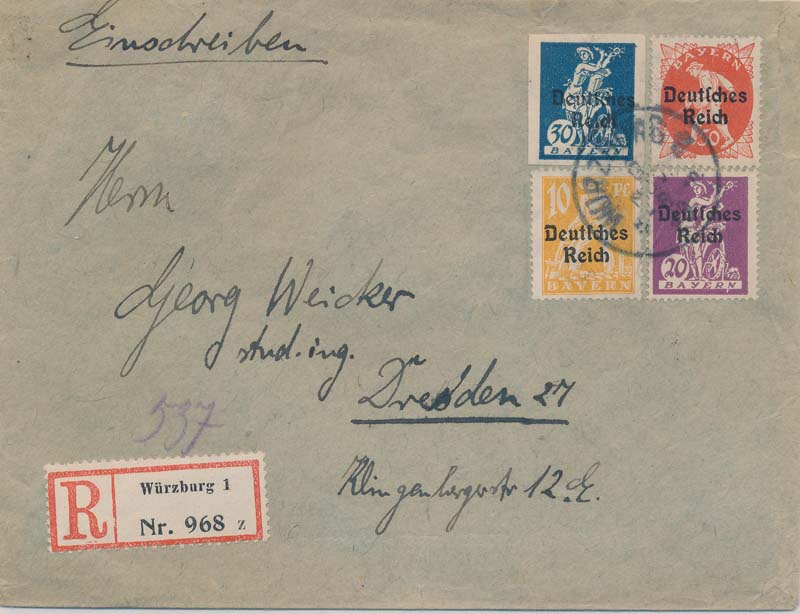 Einschreiben
Deutsches
Reich
30
BAYERN
BAYERN
Deutsches
Reich
60
10 Pf
Deutsches
Reich
BAYERN
Deutsches
Reich
20
BAYERN
Herrn
Georg Weicker
stud. ing.
Dresden 27
12
537
R
Würzburg 1
Nr. 968 z